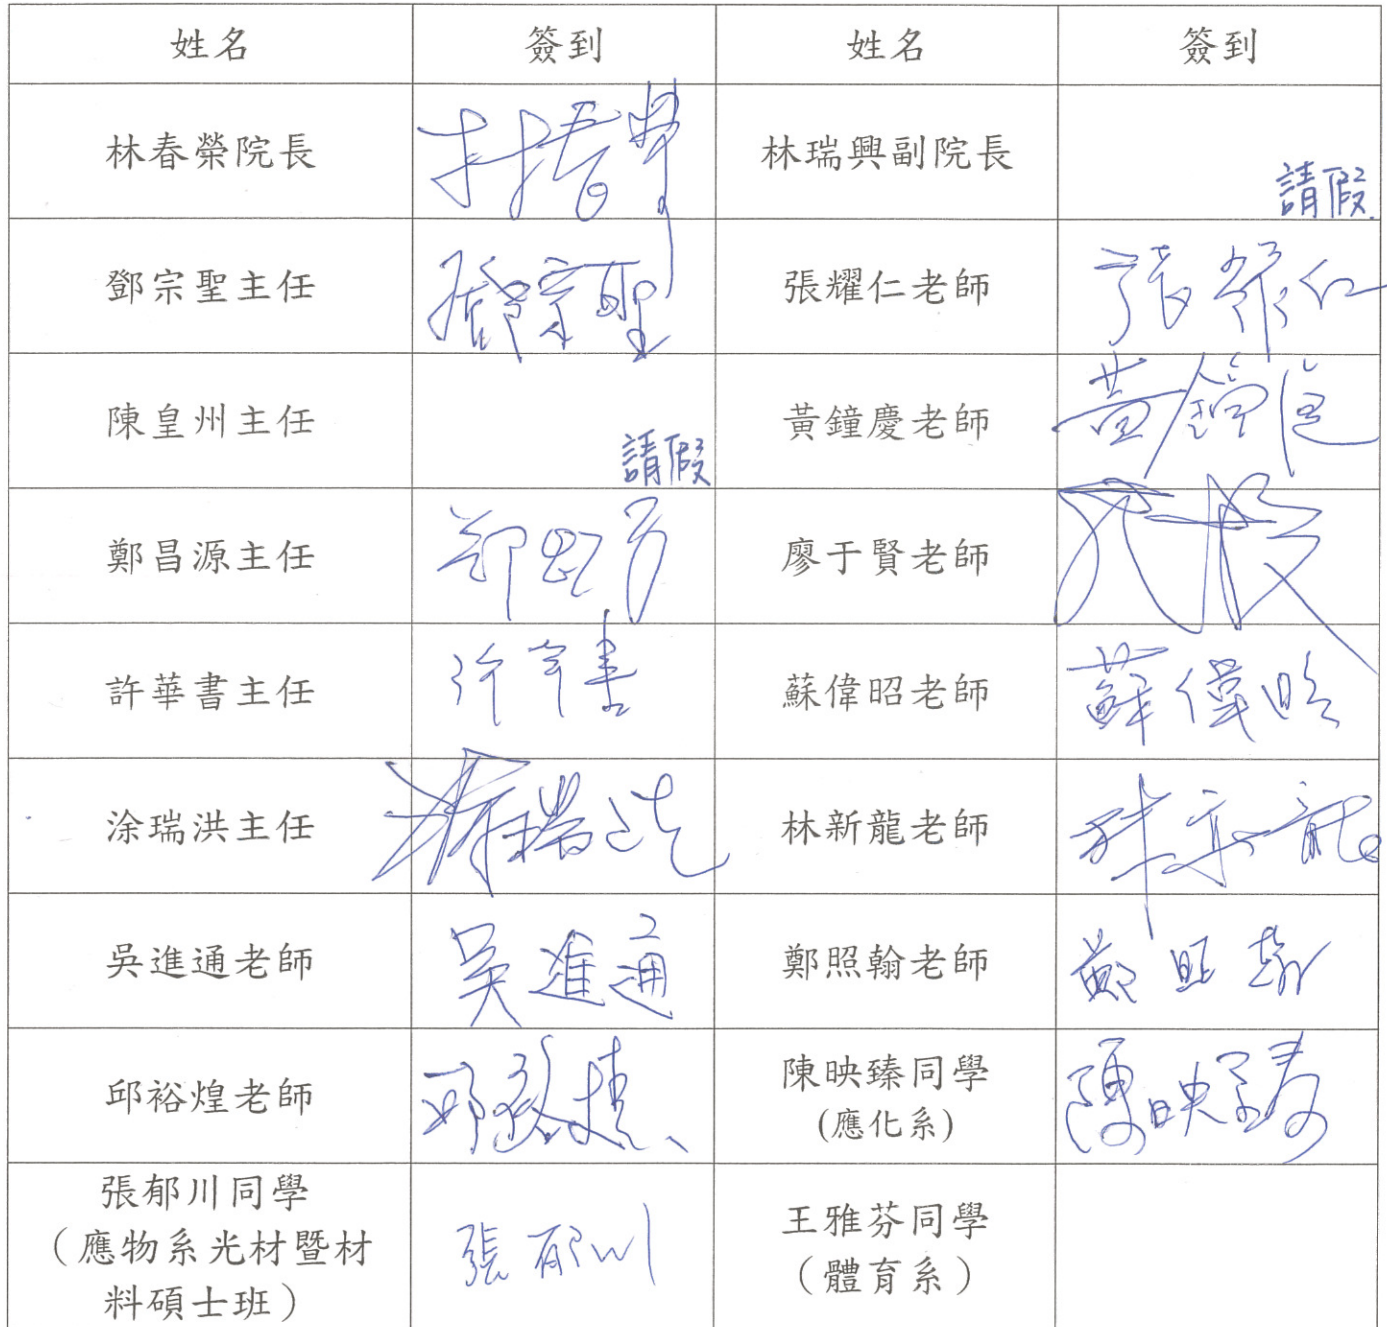 姓名 簽到 姓名 簽到
林春榮院長 林春榮 林瑞興副院長 請假
鄧宗聖主任 鄧宗聖 張耀仁老師 張耀仁
陳皇州主任 請假 黃鐘慶老師 黃鐘慶
鄭昌源主任 廖于賢老師
許華書主任 許華書 蘇偉昭老師 蘇偉昭
涂瑞洪主任 涂瑞洪 林新龍老師 林新龍
吳進通老師 吳進通 鄭照翰老師 鄭照翰
邱裕煌老師 邱裕煌 陳映臻同學 陳映臻
(應化系)
張郁川同學 張郁川 王雅芬同學
（應物系光材暨材 （體育系）
料碩士班）